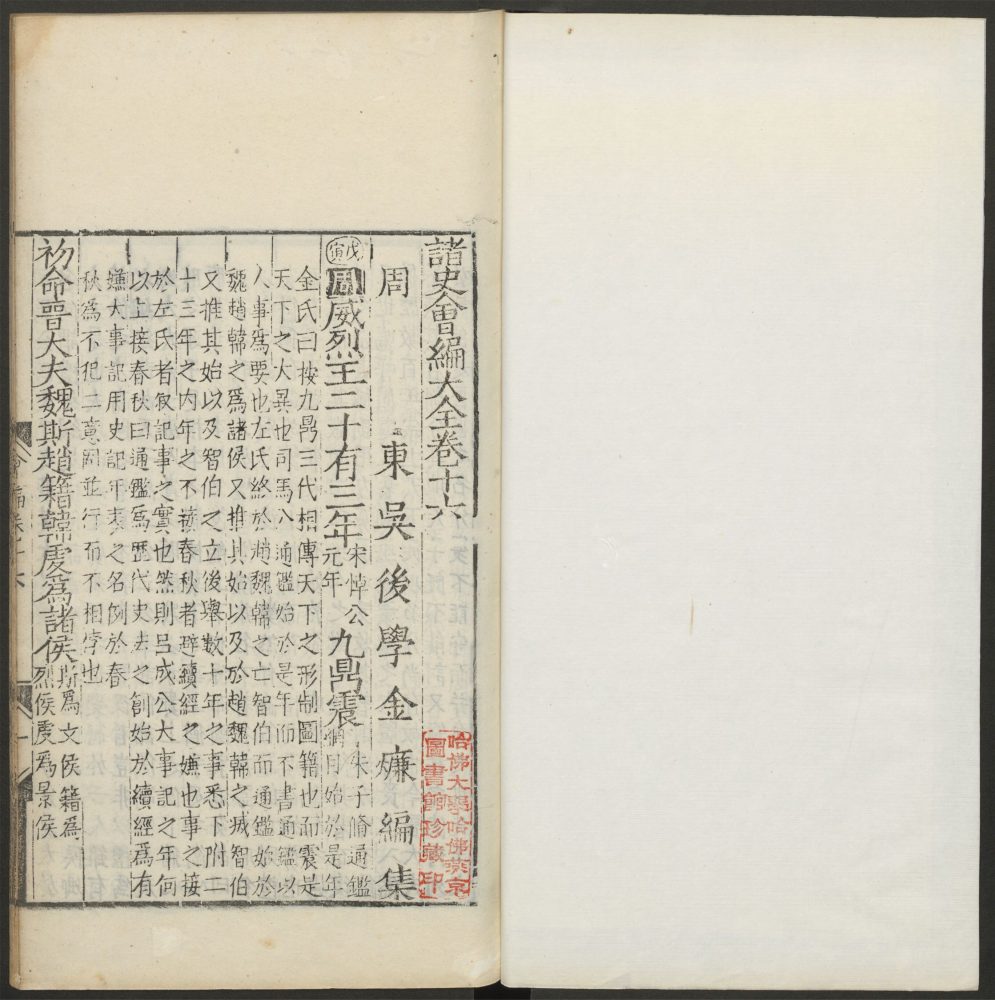 諸史會編大全卷十六
周
東吳後學金燫編集
戊寅
周威烈王二十有三年
宋悼公
元年
九鼎震
朱子脩通鑑
綱目始於是年
金氏曰按九鼎三代相傳天下之形制圖籍也而震是
天下之大異也司馬公通鑑始於是年而不書通鑑以
人事爲要也左氏終於趙魏韓之亡智伯而通鑑始於
魏趙韓之爲諸侯又推其始以及於趙魏韓之滅智伯
又推其始以及智伯之立後舉數十年之事悉下附二
十三年之內年之不接春秋者避續經之嫌也事之接
於左氏者叙記事之實也然則呂成公大事記之年何
以上接春秋曰通鑑爲歷代史表之創始於續經爲有
嫌大事記用史記年表之名例於春
秋爲不犯二意固並行而不相悖也
初命晉大夫魏斯趙籍韓虔爲諸侯
斯爲文侯籍爲
烈侯虔爲景侯
哈佛大學哈佛燕京
圖書館珍藏印